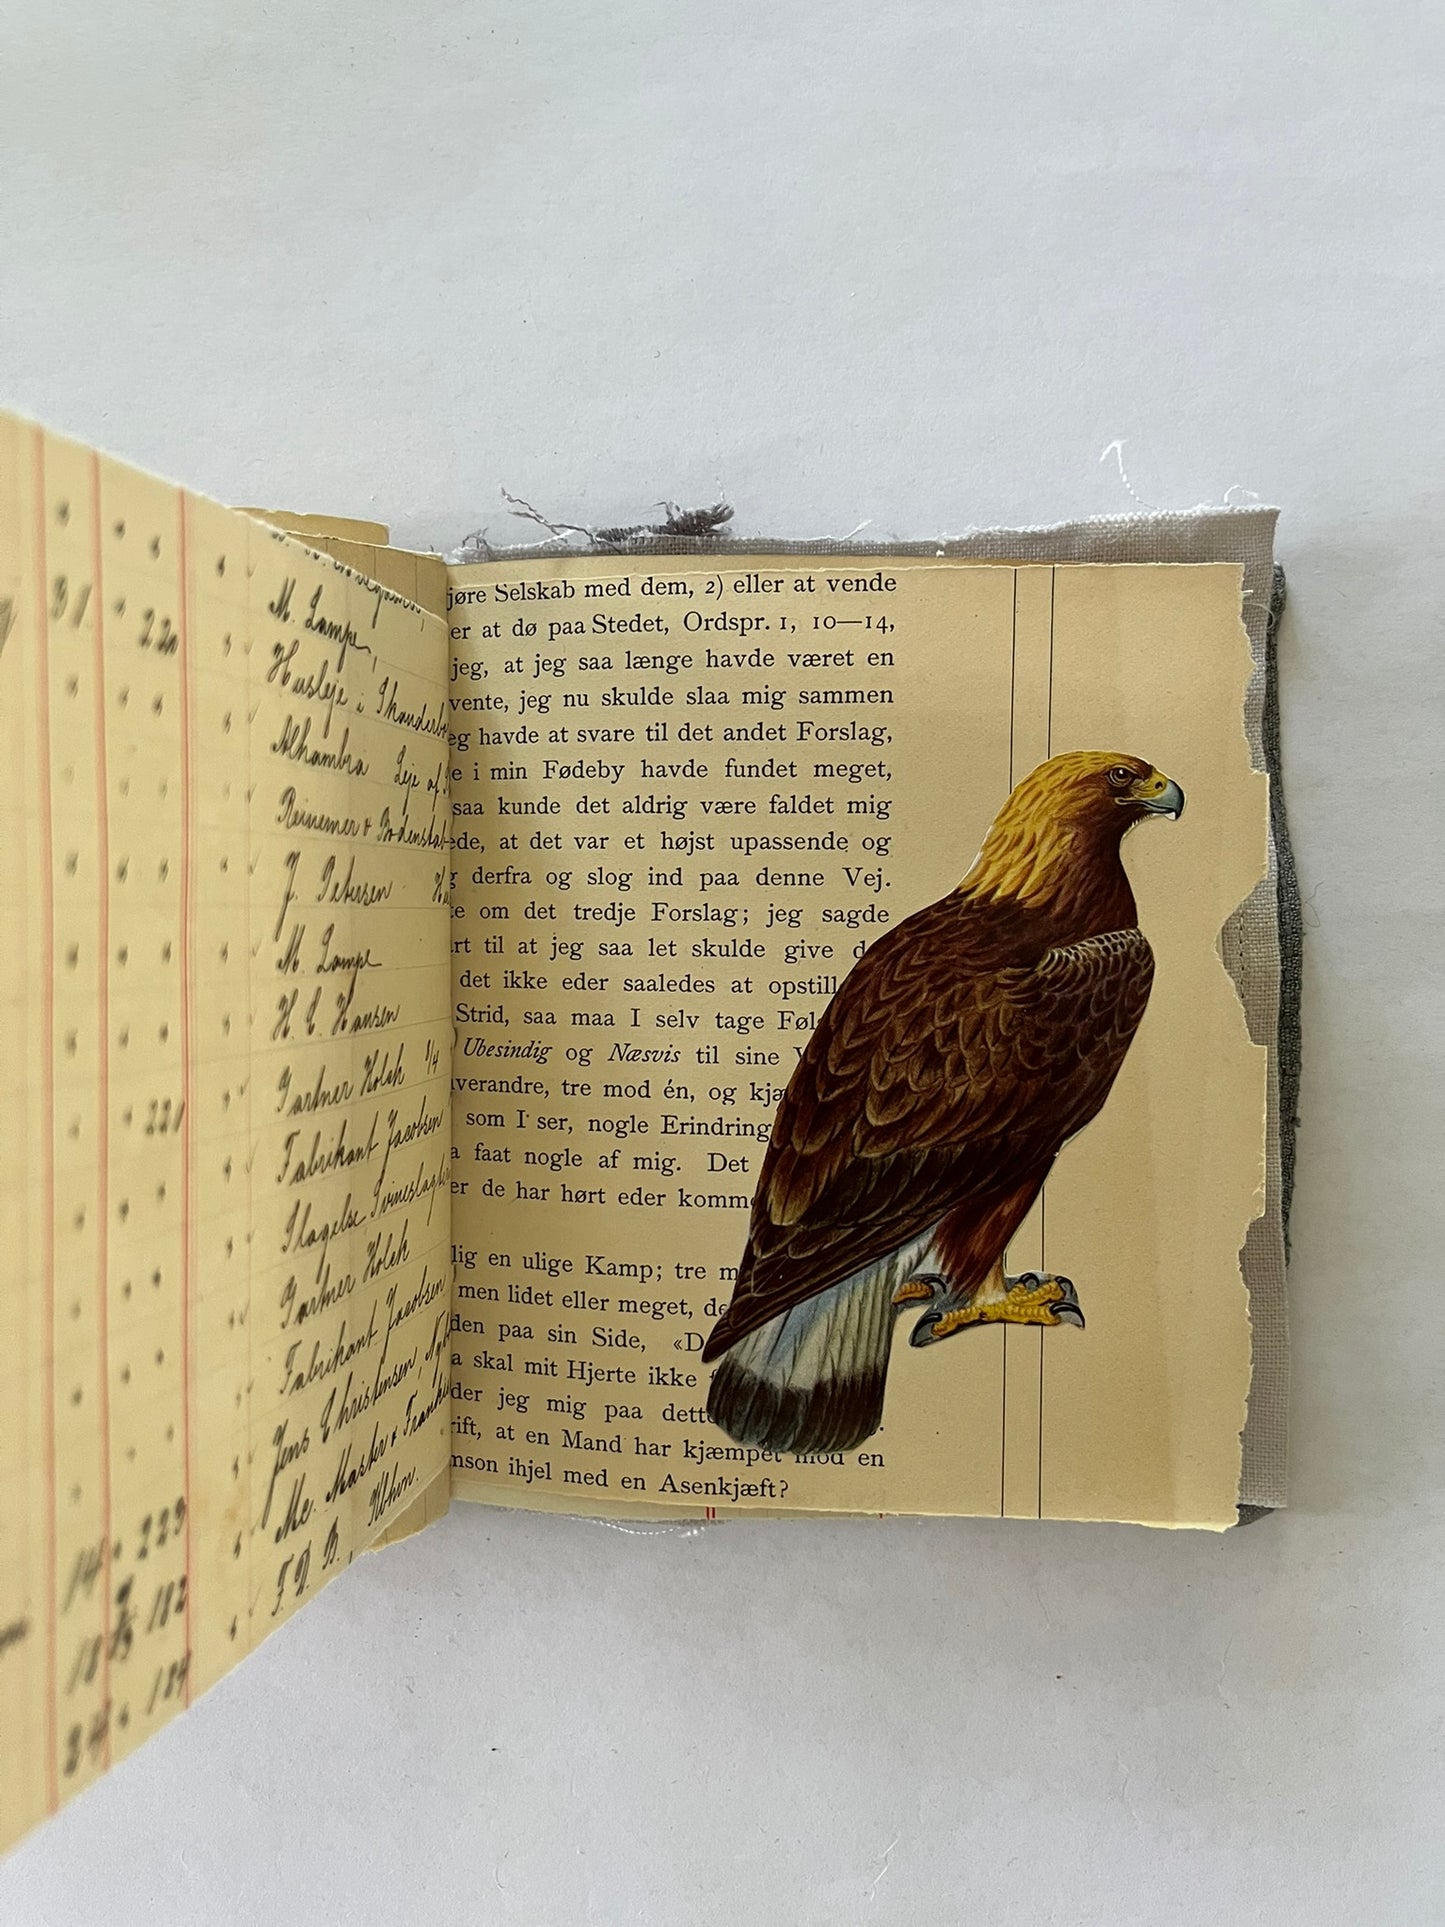 31 " 220
M. Lampe,
Husleje i Skanderb
Alhambra Leje af
Reinemer & Bodenstab
J. Petersen
M. Lampe
H. C. Hansen
Gartner Holch 1/4
221
Fabrikant Jacobsen
Slagelse Svineslagte
Gartner Holch
Fabrikant Jacobsen
Jens Christensen,
Me. Marker & Franke
14 " 223 Kbhvn.
F. D. B.,
18 182
24 " 184
jøre Selskab med dem, 2) eller at vende
er at dø paa Stedet, Ordspr. 1, 10—14,
jeg, at jeg saa længe havde været en
vente, jeg nu skulde slaa mig sammen
eg havde at svare til det andet Forslag,
e i min Fødeby havde fundet meget,
saa kunde det aldrig være faldet mig
ede, at det var et højst upassende og
g derfra og slog ind paa denne Vej.
te om det tredje Forslag; jeg sagde
rt til at jeg saa let skulde give d
det ikke eder saaledes at opstill
Strid, saa maa I selv tage Føl
Ubesindig og Næsvis til sine V
verandre, tre mod én, og kjæ
som I ser, nogle Erindring
a faat nogle af mig. Det
er de har hørt eder komme
lig en ulige Kamp; tre m
men lidet eller meget, de
den paa sin Side, «D
a skal mit Hjerte ikke
der jeg mig paa dette
rift, at en Mand har kjæmpet mod en
mson ihjel med en Asenkjæft?